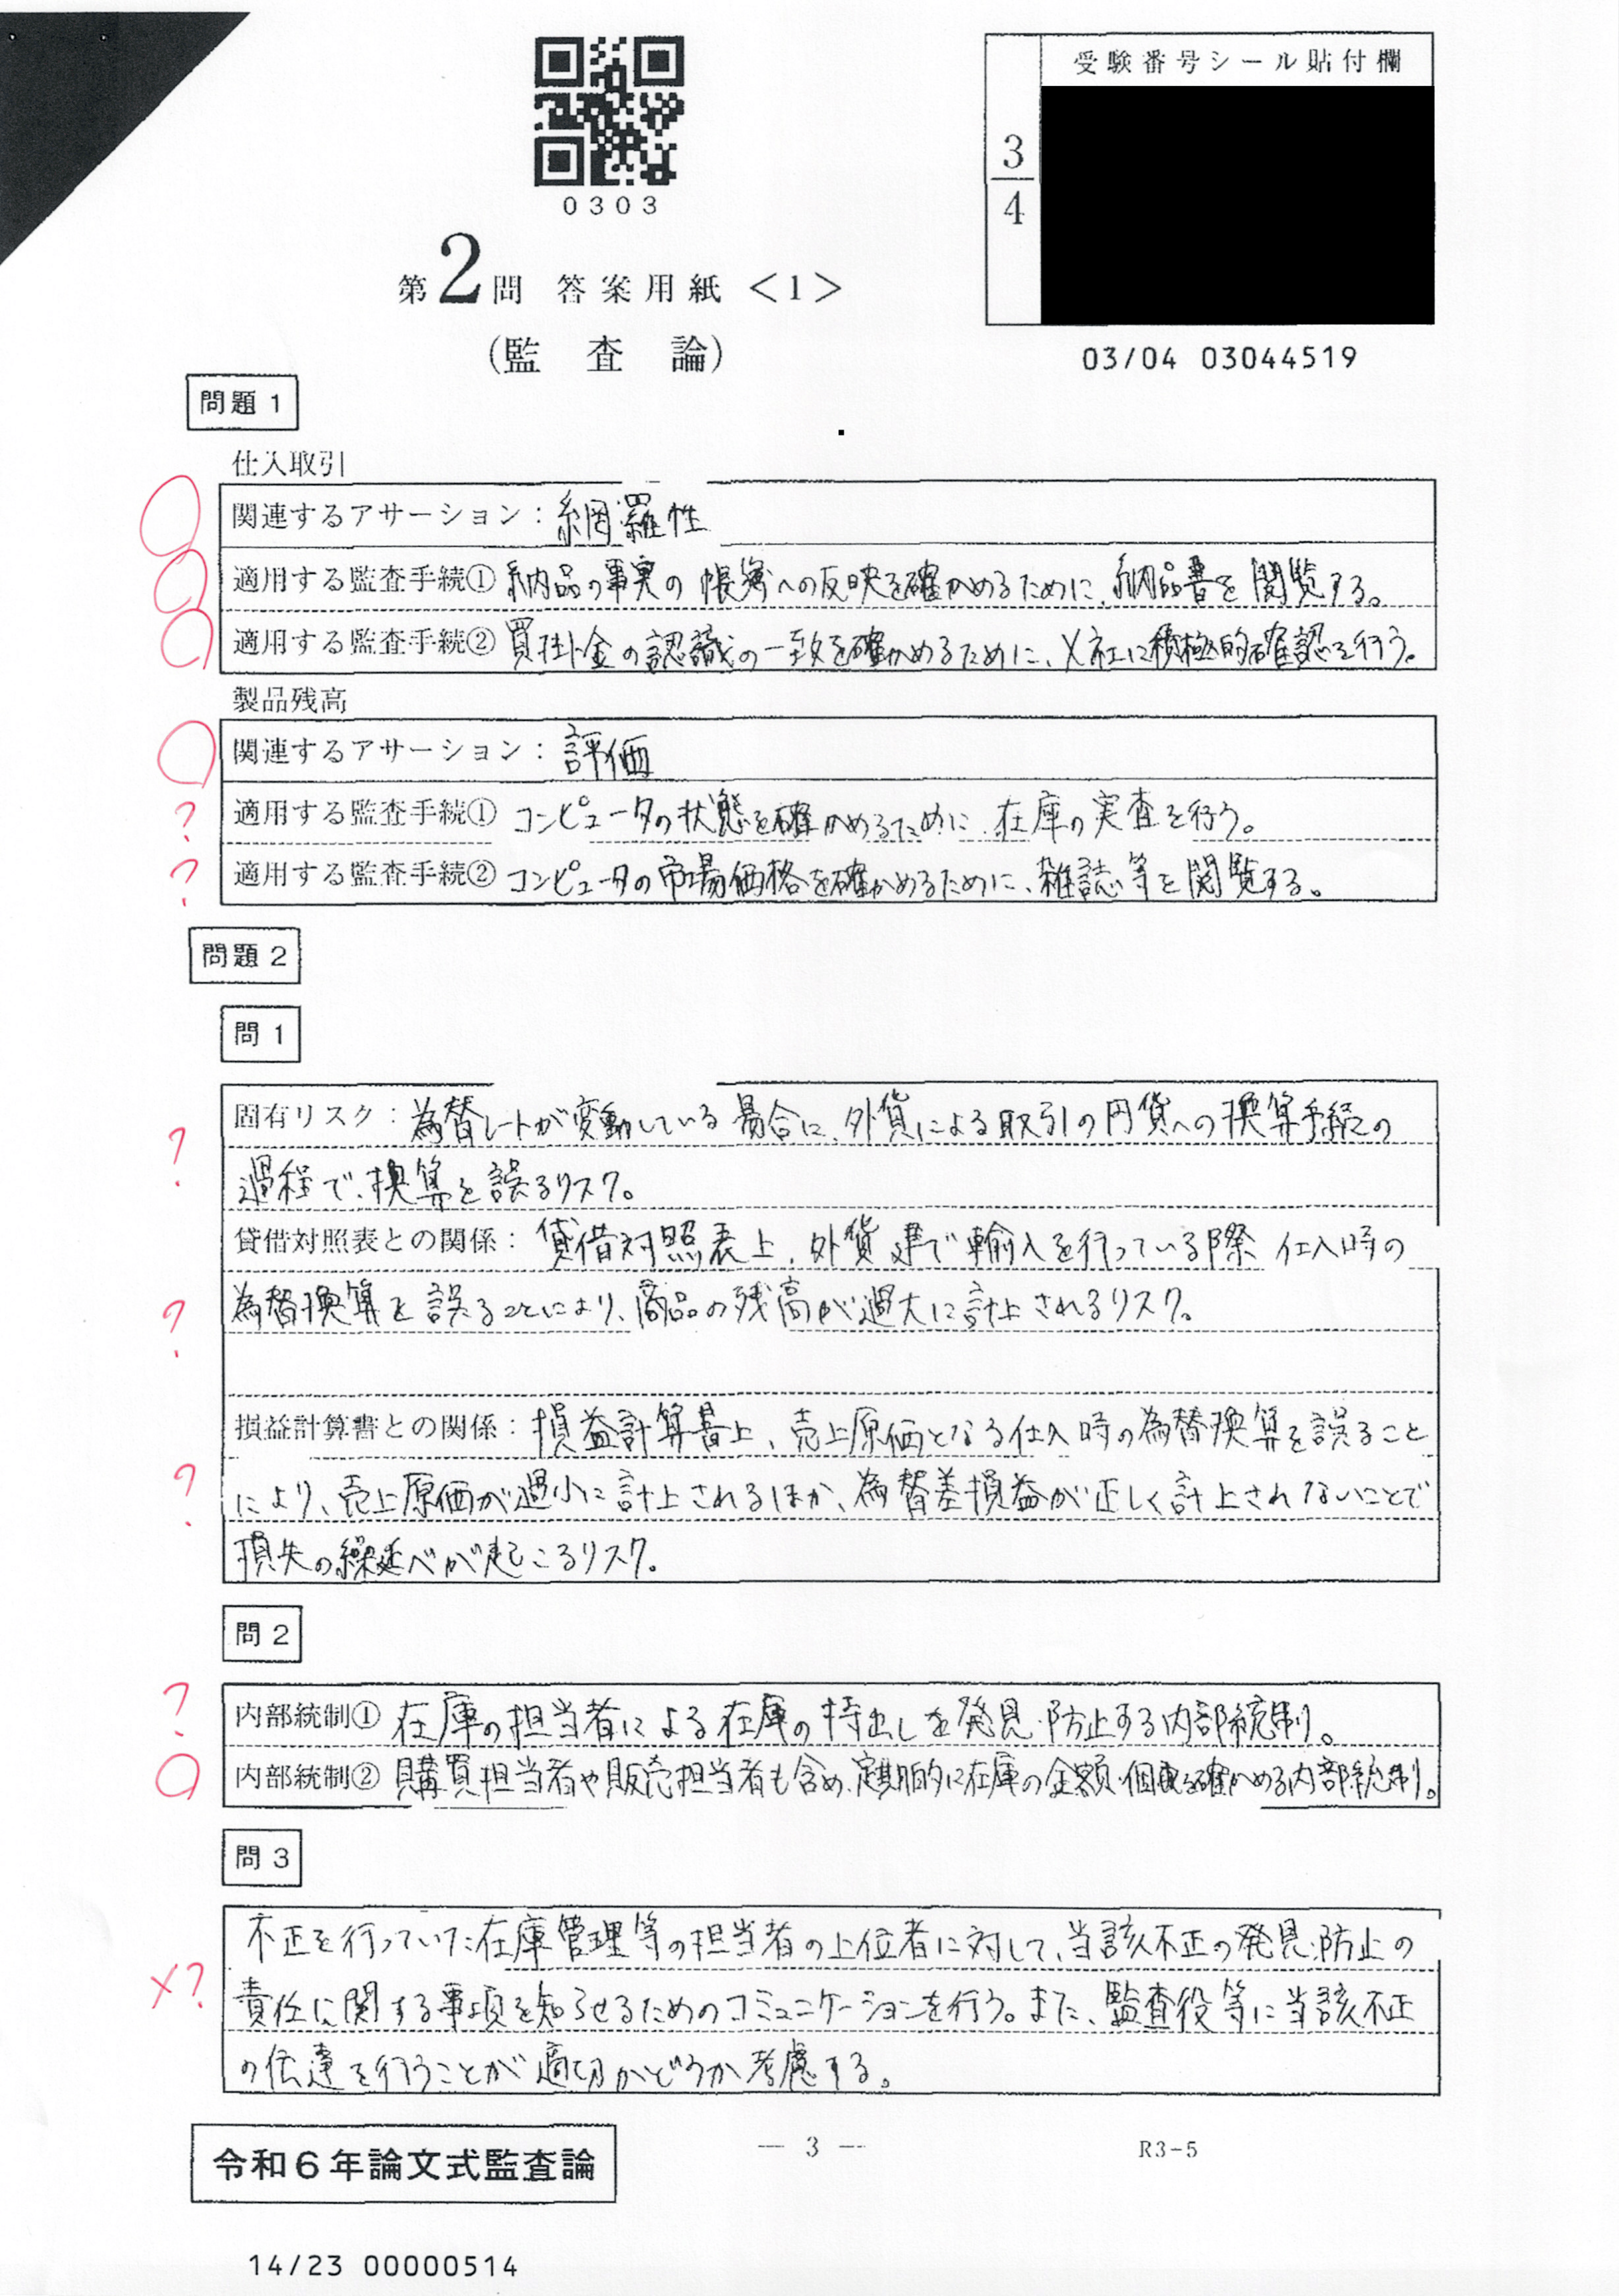 0303
受験番号シール貼付欄
3
4
第2問 答案用紙<1>
(監査論)
03/04 03044519
問題1
仕入取引
関連するアサーション:網羅性
適用する監査手続① 納品の事実の帳簿への反映を確かめるために、納品書を閲覧する。
適用する監査手続② 買掛金の認識の一致を確かめるために、X社に積極的確認を行う。
製品残高
関連するアサーション:評価
適用する監査手続① コンピュータの状態を確かめるために、在庫の実査を行う。
適用する監査手続② コンピュータの市場価格を確かめるために、雑誌等を閲覧する。
問題2
問1
固有リスク:為替レートが変動している場合に、外貨による取引の円貨への換算手続の
過程で、換算を誤るリスク。
貸借対照表との関係:貸借対照表上、外貨建で輸入を行っている際 仕入時の
為替換算を誤ることにより、商品の残高が過大に計上されるリスク。
損益計算書との関係:損益計算書上、売上原価となる仕入時の為替換算を誤ること
により、売上原価が過小に計上されるほか、為替差損益が正しく計上されないことで
損失の繰延べが起こるリスク。
問2
内部統制① 在庫の担当者による在庫の持出しを発見・防止する内部統制。
内部統制② 購買担当者や販売担当者も含め、定期的に在庫の金額・個数を確かめる内部統制。
問3
不正を行っていた在庫管理等の担当者の上位者に対して、当該不正の発見・防止の
×? 責任に関する事項を知らせるためのコミュニケーションを行う。また、監査役等に当該不正
の伝達を行うことが適切かどうか考慮する。
— 3 —
R3-5
令和6年論文式監査論
14/23 00000514